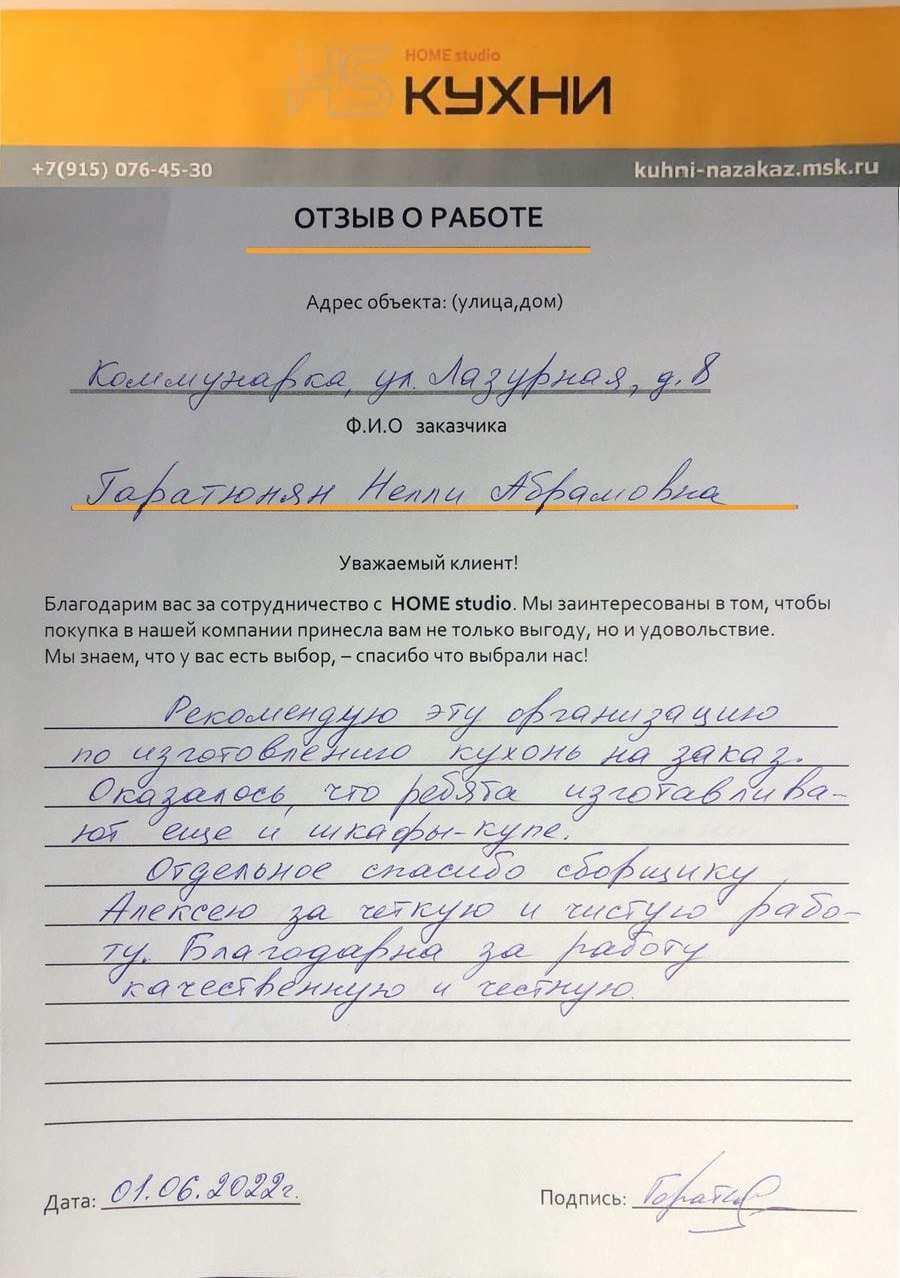 HS HOME studio
КУХНИ
+7(915) 076-45-30 kuhni-nazakaz.msk.ru
ОТЗЫВ О РАБОТЕ
Адрес объекта: (улица,дом)
Коммунарка, ул. Лазурная, д. 8
Ф.И.О заказчика
Гаратюнян Нелли Абрамовна
Уважаемый клиент!
Благодарим вас за сотрудничество с HOME studio. Мы заинтересованы в том, чтобы
покупка в нашей компании принесла вам не только выгоду, но и удовольствие.
Мы знаем, что у вас есть выбор, – спасибо что выбрали нас!
Рекомендую эту организацию
по изготовлению кухонь на заказ.
Оказалось, что ребята изготавлива-
ют еще и шкафы-купе.
Отдельное спасибо сборщику
Алексею за четкую и чистую рабо-
ту. Благодарна за работу
качественную и честную.
Дата: 01.06.2022г. Подпись: